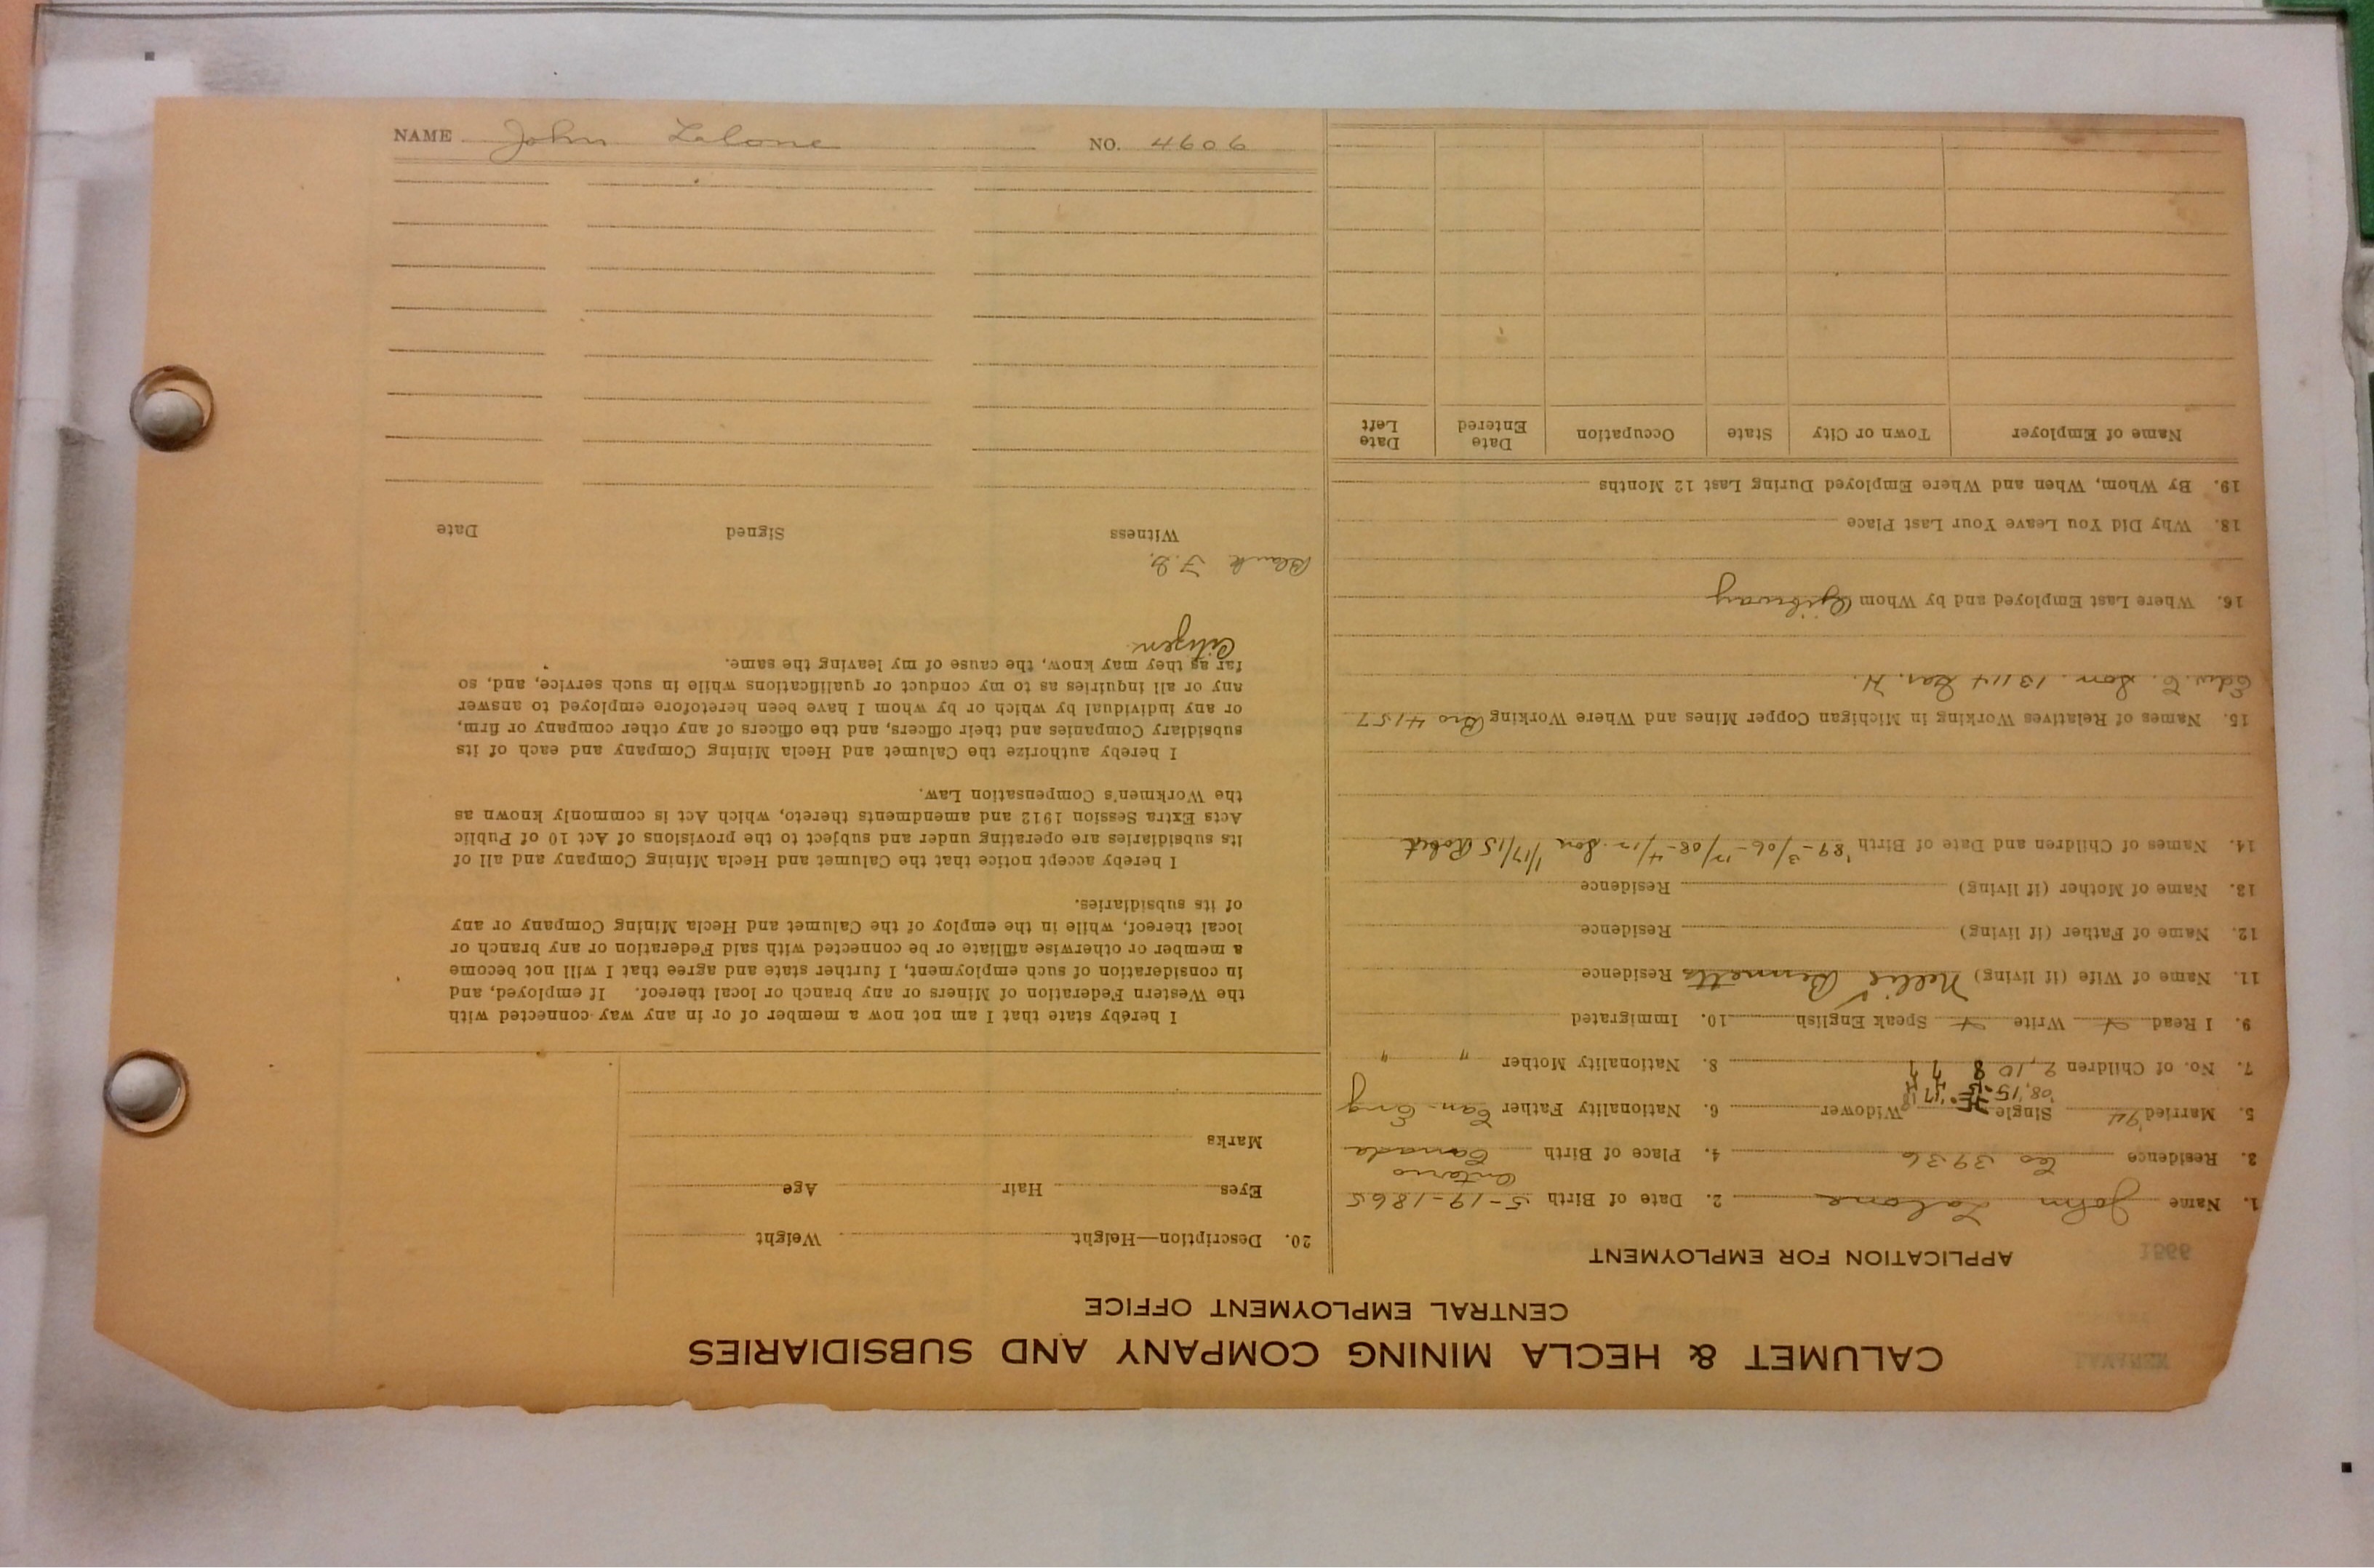 CALUMET & HECLA MINING COMPANY AND SUBSIDIARIES
CENTRAL EMPLOYMENT OFFICE
APPLICATION FOR EMPLOYMENT
1. Name John Lalone 2. Date of Birth 5-19-1865
Ontario
3. Residence Co 3936 4. Place of Birth Canada
5. Married '94 Single Widower 6. Nationality Father Can-Eng
'08, '15
7. No. of Children 9, 10 8 7 7 8. Nationality Mother " "
9. I Read Write Speak English 10. Immigrated
11. Name of Wife (if living) Nellie Bennetts Residence
12. Name of Father (if living) Residence
13. Name of Mother (if living) Residence
14. Names of Children and Date of Birth '89-3/06-12/08-4/12. Son 1/17/15 Robert
15. Names of Relatives Working in Michigan Copper Mines and Where Working Bro 4157
Edw. C. Son. 13114 H.
16. Where Last Employed and by Whom Ojibway
18. Why Did You Leave Your Last Place
19. By Whom, When and Where Employed During Last 12 Months
Name of Employer Town or City State Occupation Date Entered Date Left
20. Description—Height Weight
Eyes Hair Age
Marks
I hereby state that I am not now a member of or in any way connected with
the Western Federation of Miners or any branch or local thereof. If employed, and
in consideration of such employment, I further state and agree that I will not become
a member or otherwise affiliate or be connected with said Federation or any branch or
local thereof, while in the employ of the Calumet and Hecla Mining Company or any
of its subsidiaries.
I hereby accept notice that the Calumet and Hecla Mining Company and all of
its subsidiaries are operating under and subject to the provisions of Act 10 of Public
Acts Extra Session 1912 and amendments thereto, which Act is commonly known as
the Workmen's Compensation Law.
I hereby authorize the Calumet and Hecla Mining Company and each of its
subsidiary Companies and their officers, and the officers of any other company or firm,
or any individual by which or by whom I have been heretofore employed to answer
any or all inquiries as to my conduct or qualifications while in such service, and, so
far as they may know, the cause of my leaving the same.
Citizen
Blank
Witness Signed Date
NAME John Lalone NO. 4606